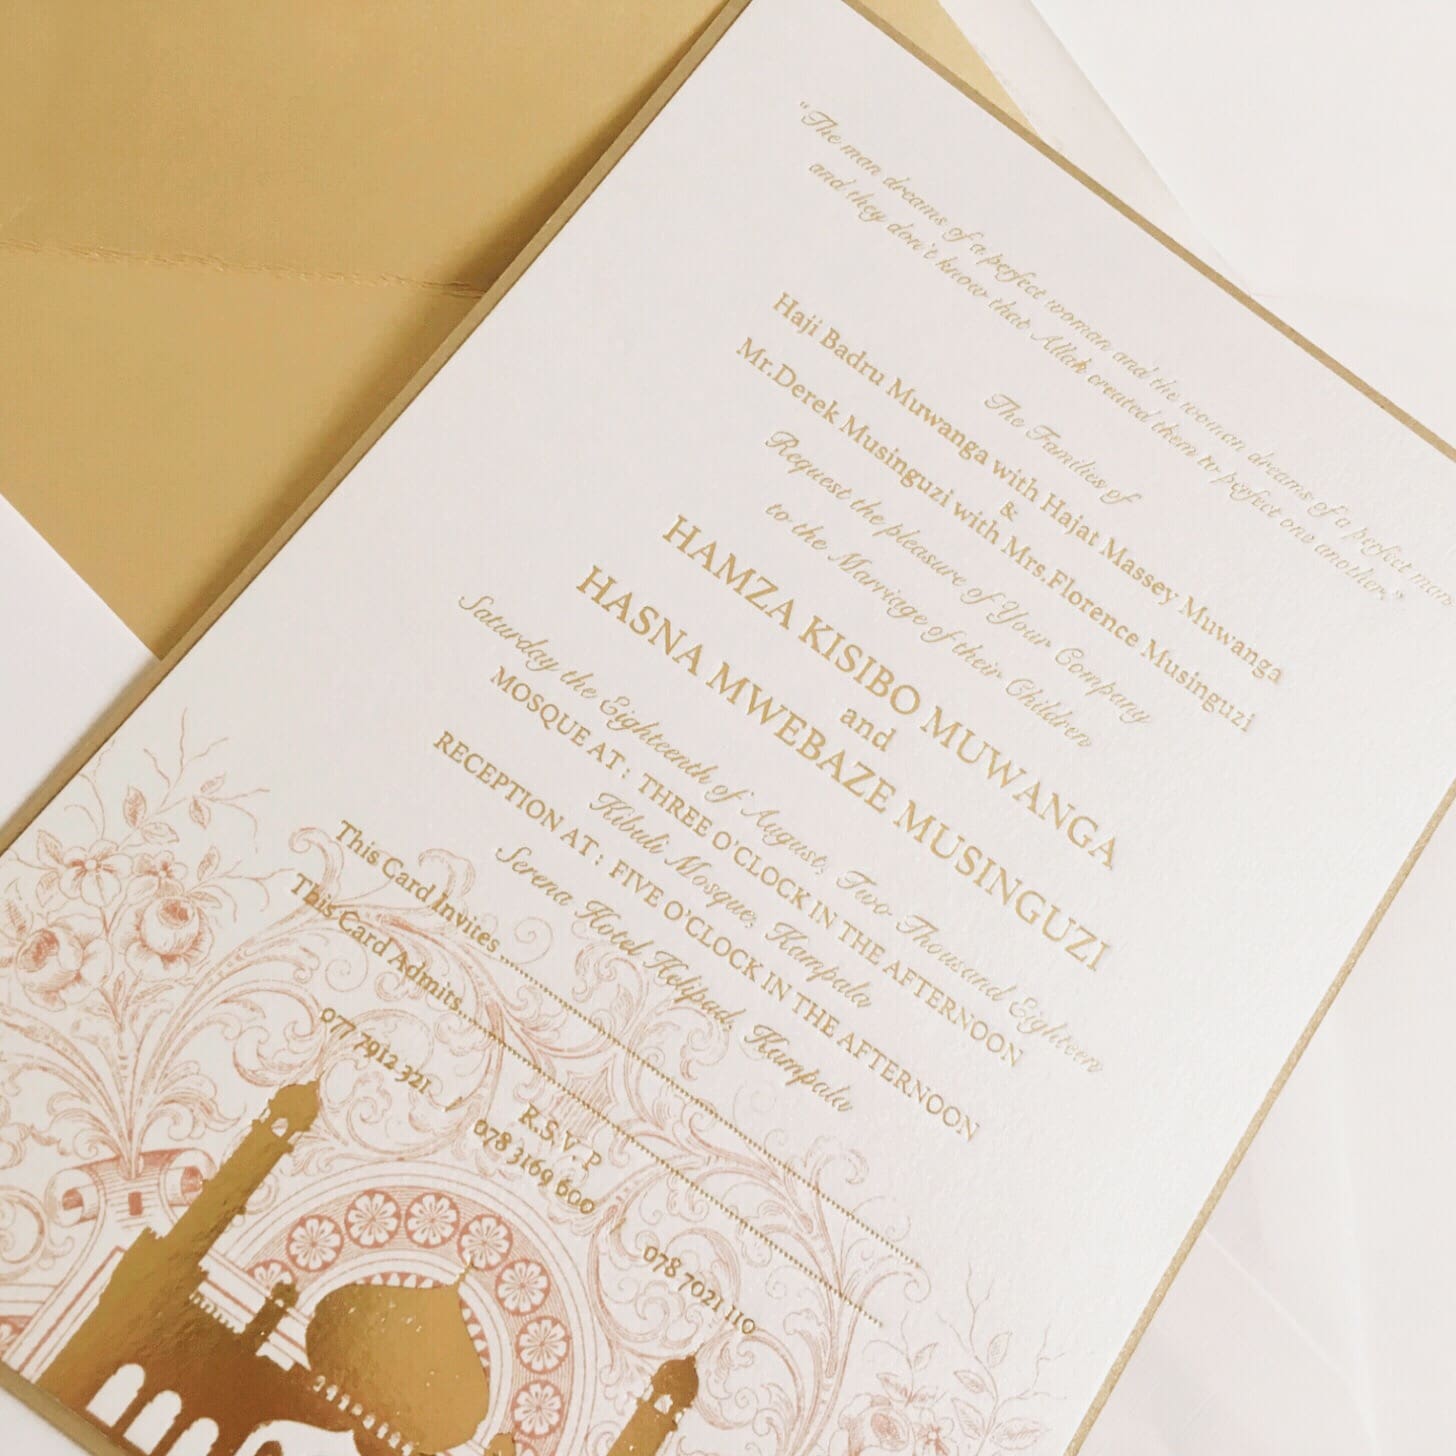 "The man dreams of a perfect woman and the woman dreams of a perfect man
and they don't know that Allah created them to perfect one another."
The Families of
Haji Badru Muwanga with Hajat Massey Muwanga
&
Mr.Derek Musinguzi with Mrs.Florence Musinguzi
Request the pleasure of Your Company
to the Marriage of their Children
HAMZA KISIBO MUWANGA
and
HASNA MWEBAZE MUSINGUZI
Saturday the Eighteenth of August, Two Thousand and Eighteen
MOSQUE AT : THREE O'CLOCK IN THE AFTERNOON
Kibuli Mosque, Kampala
RECEPTION AT : FIVE O'CLOCK IN THE AFTERNOON
Serena Hotel Helipad, Kampala
This Card Invites
This Card Admits
R.S.V.P
077 7912 321 / 078 3169 600 / 078 7021 110